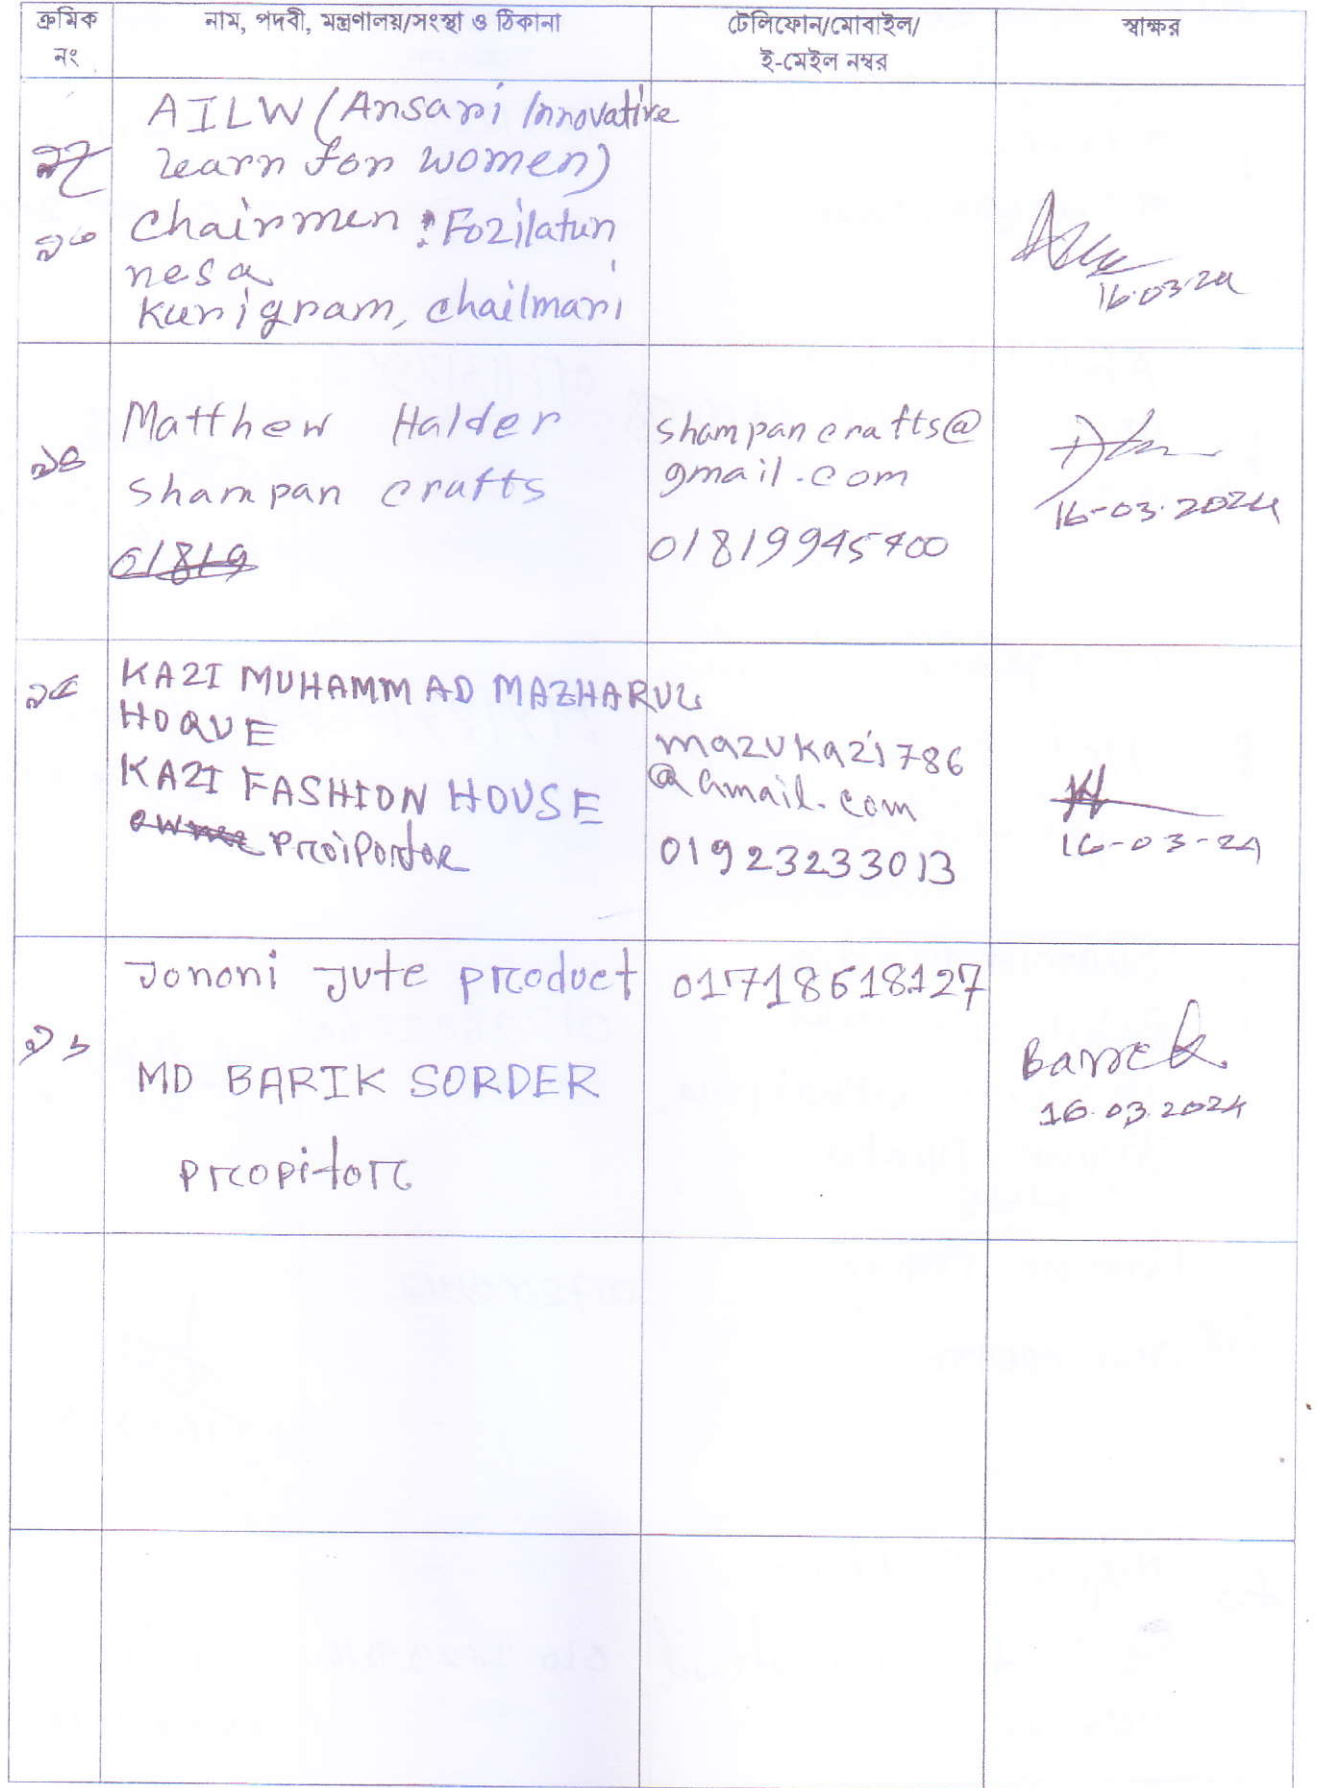 ক্রমিক নং
নাম, পদবী, মন্ত্রণালয়/সংস্থা ও ঠিকানা
টেলিফোন/মোবাইল/
ই-মেইল নম্বর
স্বাক্ষর
AILW (Ansari Innovative
Learn for women)
২৩
chairmen : Fozilatun
nesa
kurigram, chailmari
16.03.24
২৪
Matthew Halder
Shampan crafts
01819
shampancrafts@
gmail.com
01819945400
16-03.2024
২৫
KAZI MUHAMMAD MAZHARUL
HOQUE
KAZI FASHION HOUSE
owner Proiportor
mazukazi786
@Gmail.com
01923233013
16-03-24
২৬
Jononi Jute product
MD BARIK SORDER
propitor
01718618127
Barek
16.03.2024